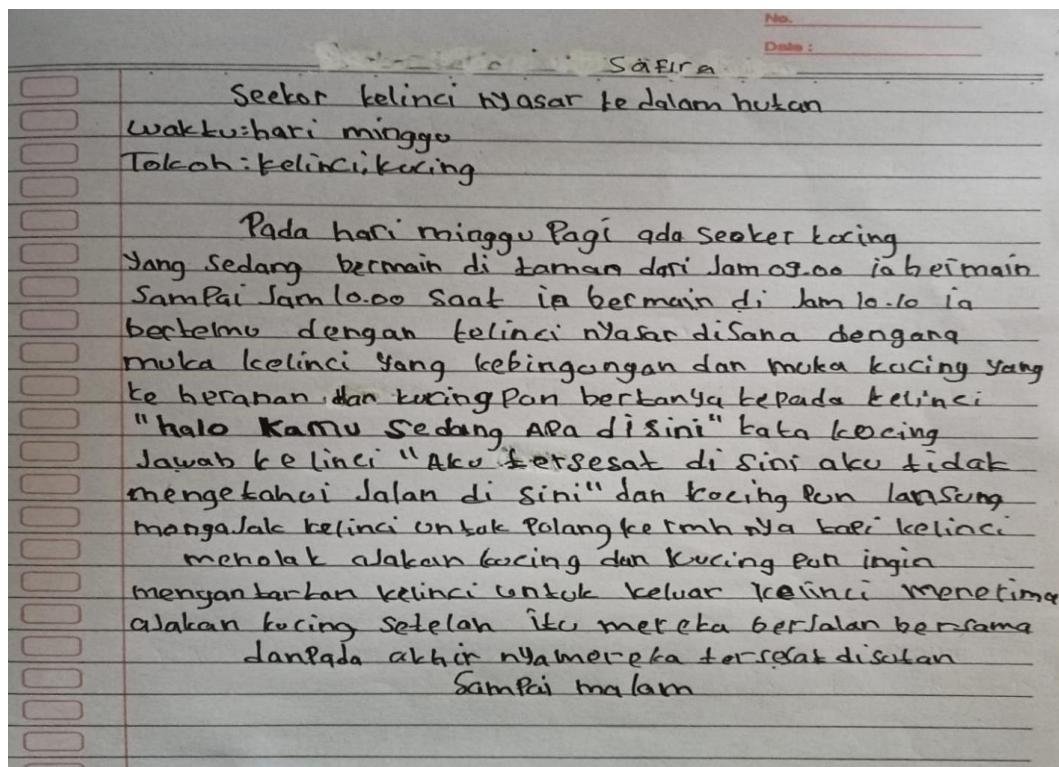 No.
Date :
Safira
Seekor kelinci nyasar ke dalam hutan
Waktu: hari minggu
Tokoh: kelinci, kucing
Pada hari minggu Pagi ada seoker kocing
Yang sedang bermain di taman dari Jam 09.00 ia beimain
Sampai Jam 10.00 Saat ia bermain di Jam 10.10 ia
bertelmu dengan kelinci nyasar disana dengang
muka kelinci yang kebingungan dan muka kucing yang
ke heranan dan kucing pun bertanya kepada kelinci
"halo kamu sedang APa disini" kata kocing
Jawab kelinci "Aku tersesat di sini aku tidak
mengetahui Jalan di sini" dan kocing pun lansung
mengaJak kelinci untuk Pulang ke rmh nya tapi kelinci
menolak aJakan kocing dan kucing pun ingin
mengantarkan kelinci untuk keluar kelinci menerima
aJakan kucing setelah itu mereka berJalan bersama
danPada akhir nya mereka tersesat disutan
Sampai malam